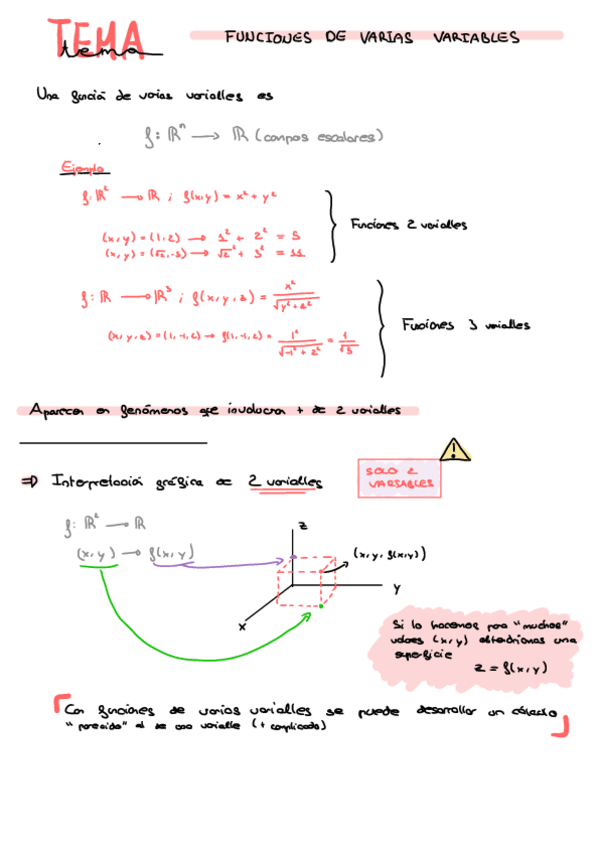 TEMA
tema
FUNCIONES DE VARIAS VARIABLES
Una función de varias variables es
f: ℝⁿ → ℝ (campos escalares)
Ejemplo
f: ℝ² → ℝ ; f(x,y) = x² + y²
(x,y) = (1,2) → 1² + 2² = 5
(x,y) = (√2,-3) → √2² + 3² = 11
Funciones 2 variables
f: ℝ → ℝ³ ; f(x,y,z) = x² / √(y²+z²)
(x,y,z) = (1,-1,2) → f(1,-1,2) = 1² / √(-1² + 2²) = 1/√5
Funciones 3 variables
Aparecen en fenómenos que involucran + de 2 variables
⇒ Interpretación gráfica de 2 variables
SOLO 2
VARIABLES
f: ℝ² → ℝ
(x,y) → f(x,y)
z
(x,y,f(x,y))
y
x
Si lo hacemos para "muchos"
valores (x,y) obtendríamos una
superficie
z = f(x,y)
Con funciones de varias variables se puede desarrollar un cálculo
"parecido" al de una variable (+ complicado)